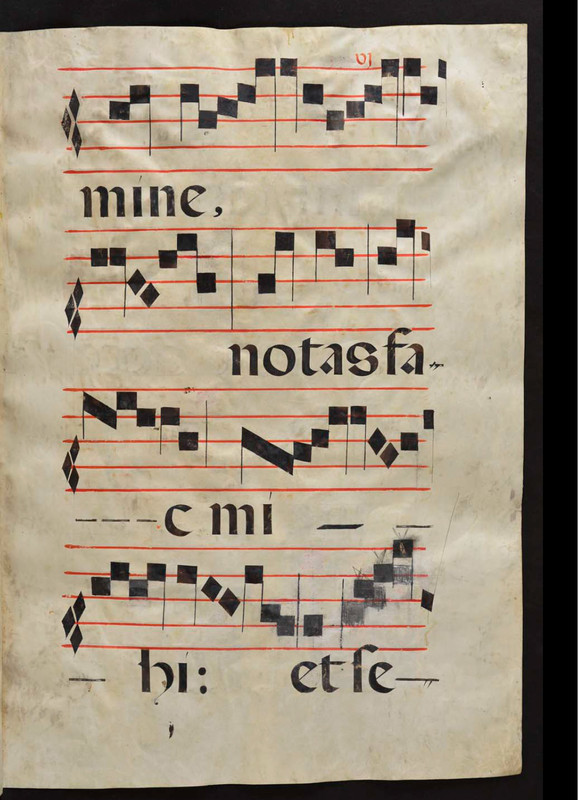 vj
mine,
notas fa-
- - - c mi - -
- hi: et se-